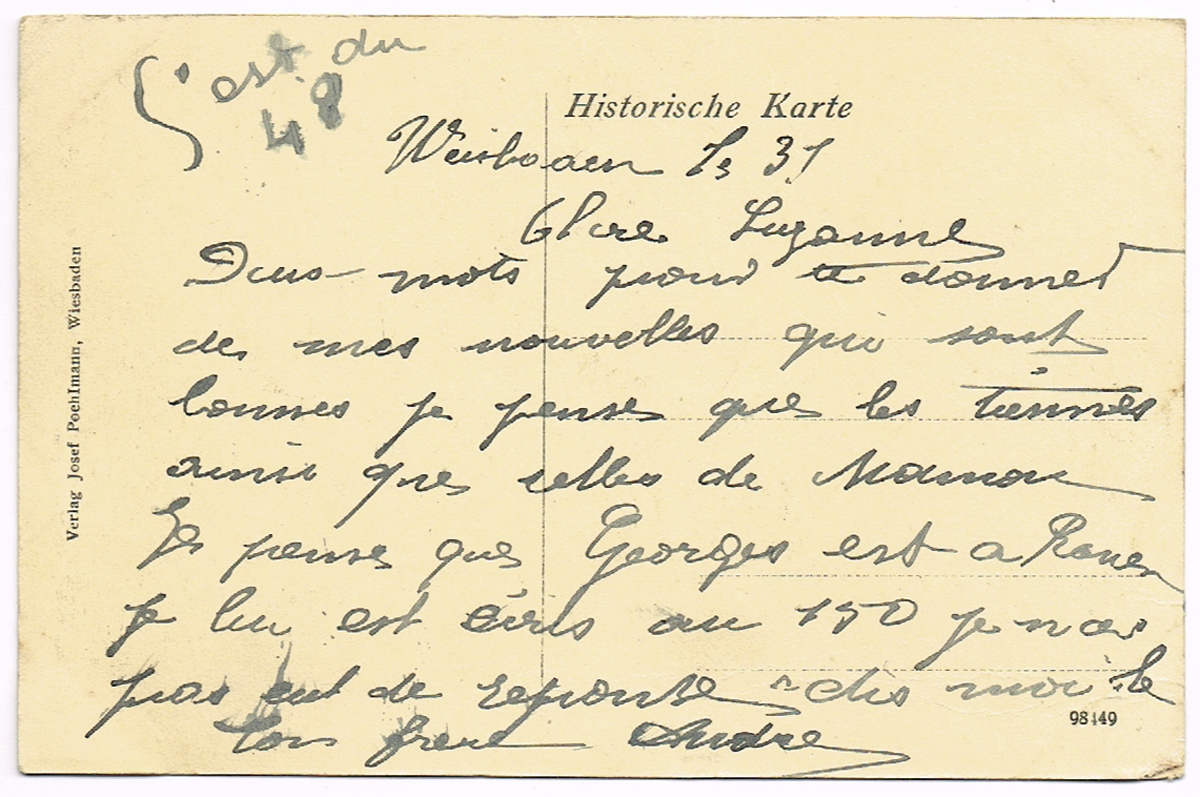 C'est du
48
Historische Karte
Weisbaaen le 31
Chere Suzanne
Deus mots pour te donner
de mes nouvelles qui sont
bonnes je pense que les tiennes
ainsi que selles de Maman
Je pense que Georges est a Rouen
je lui est écris au 150 je n'ai
pas eut de reponse dis moi le
Ton frere André
Verlag Josef Poehlmann, Wiesbaden
98449